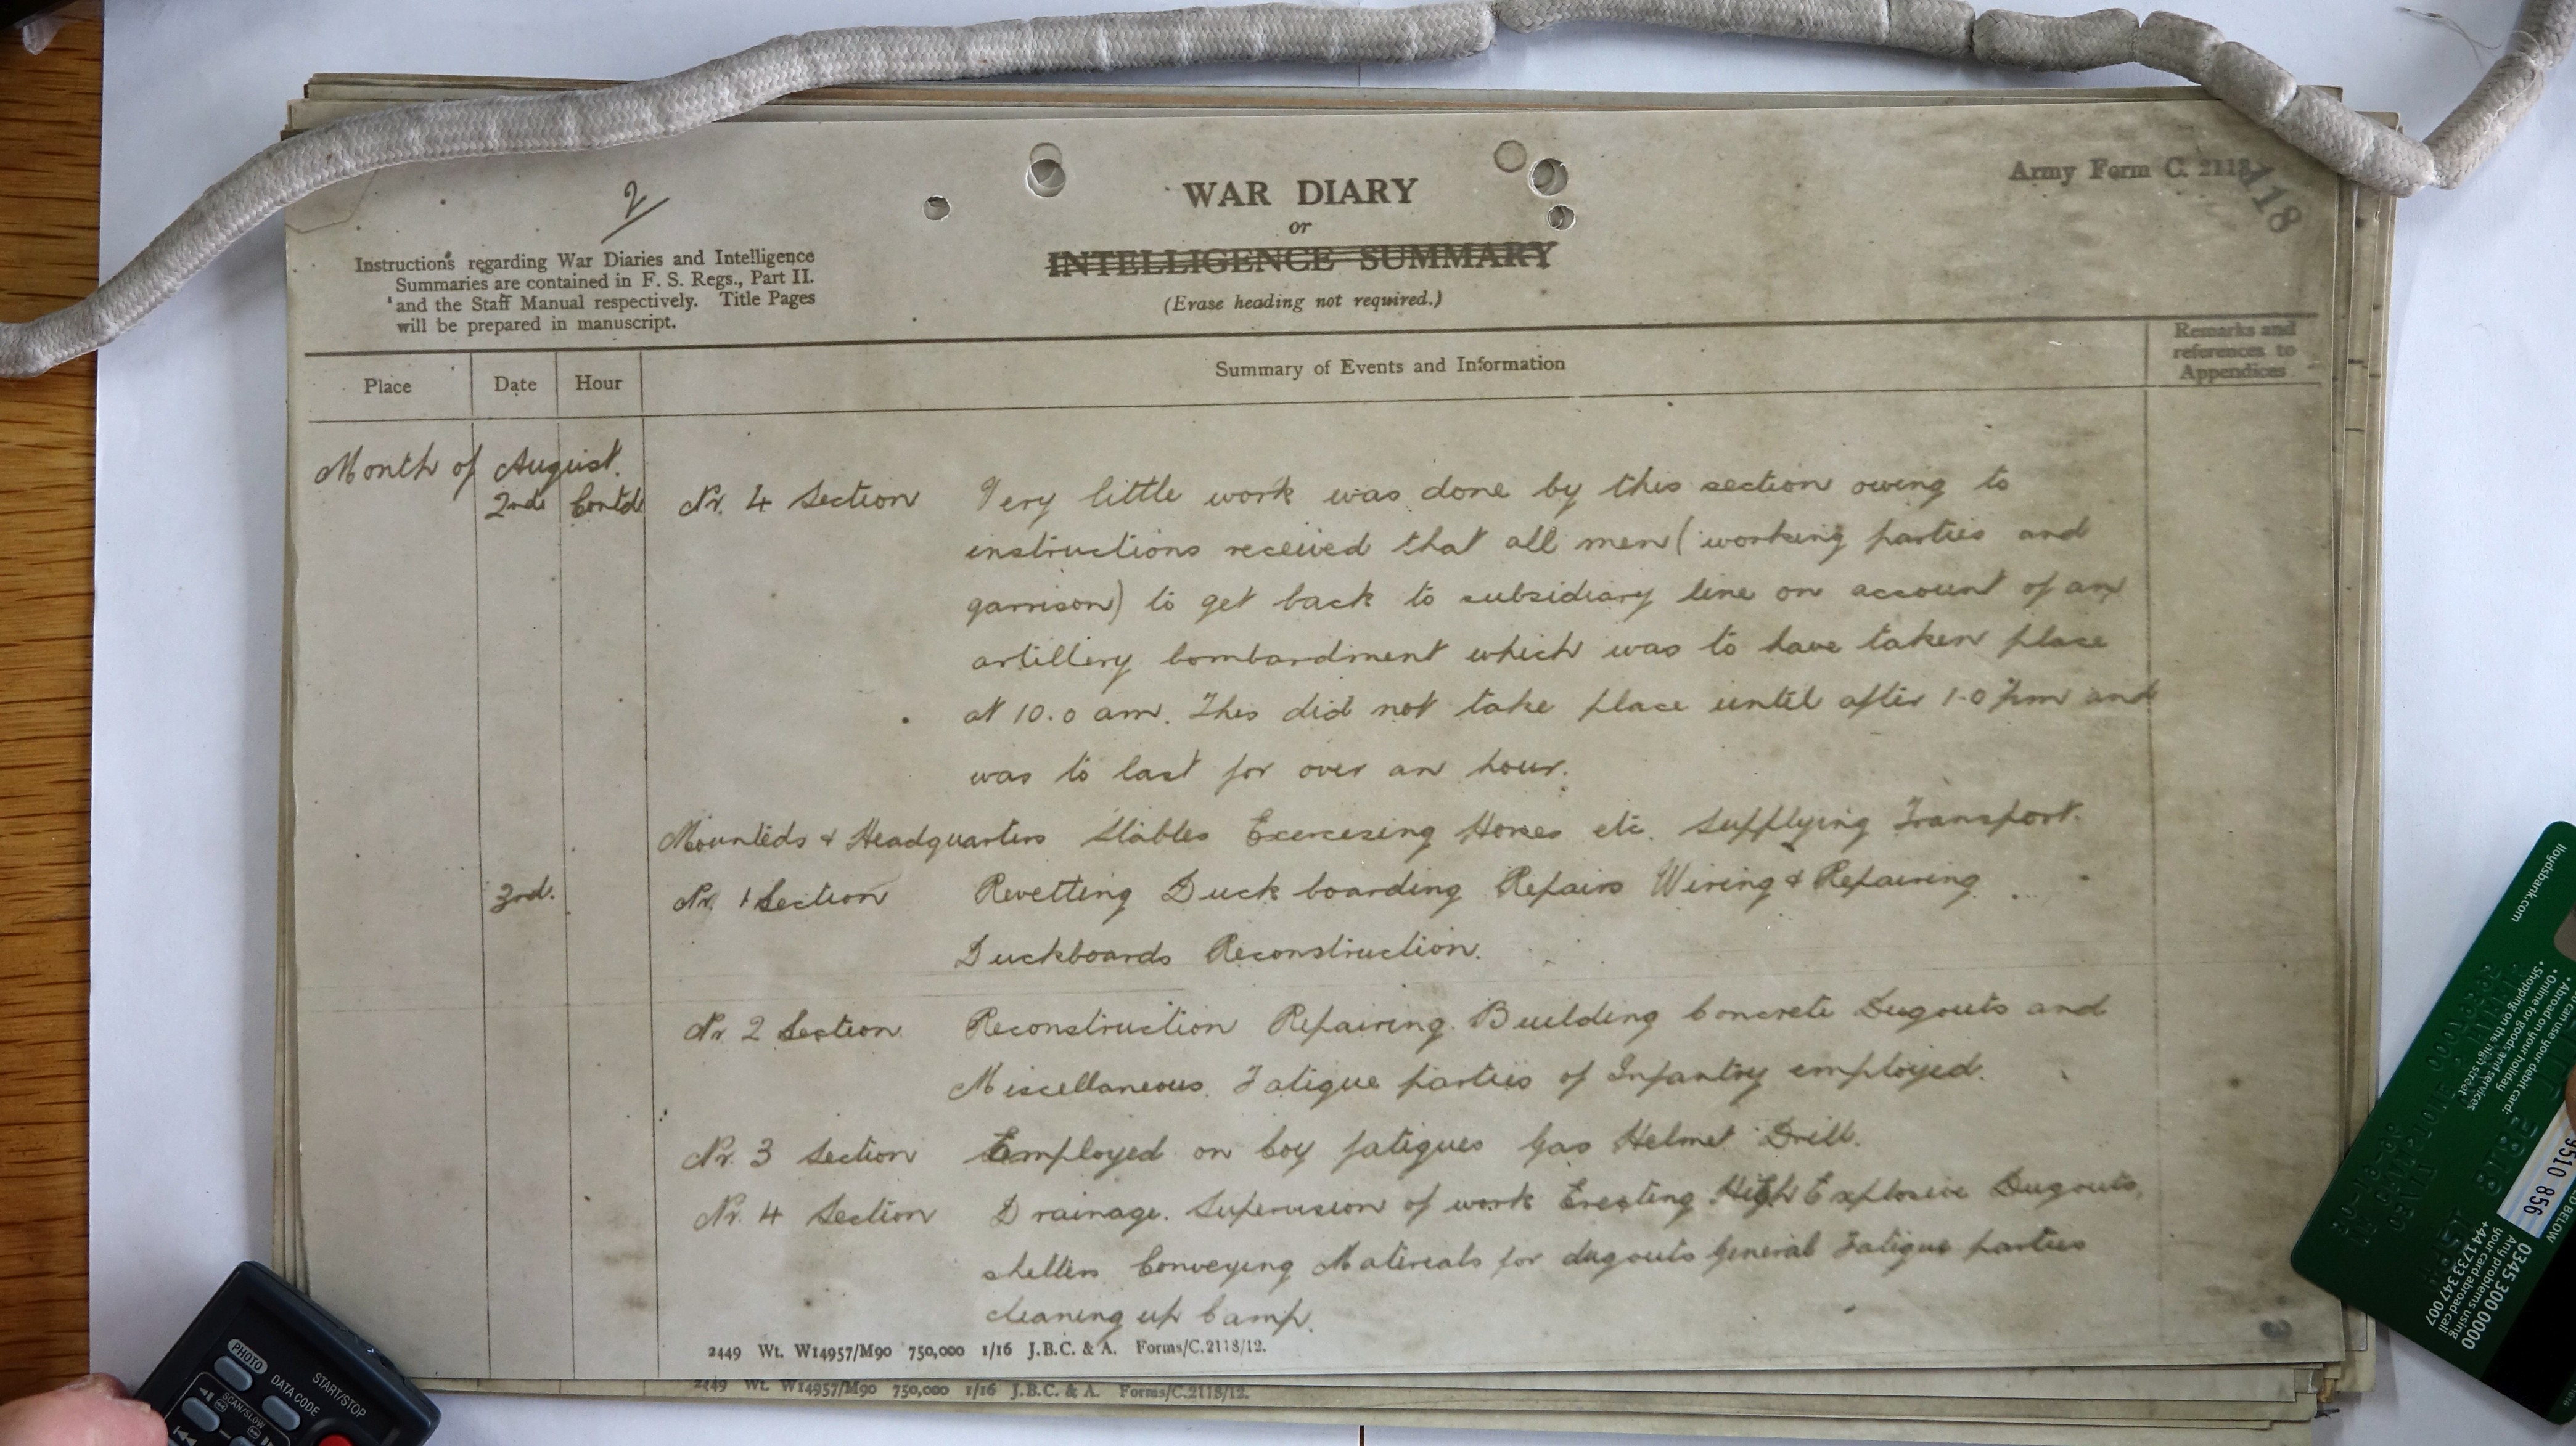 2/
Army Form C. 2118
118
WAR DIARY
or
INTELLIGENCE SUMMARY
(Erase heading not required.)
Instructions regarding War Diaries and Intelligence
Summaries are contained in F. S. Regs., Part II.
and the Staff Manual respectively. Title Pages
will be prepared in manuscript.
Place Date Hour Summary of Events and Information Remarks and
references to
Appendices
Month of August.
2nd Contd Nr. 4 Section Very little work was done by this section owing to
instructions received that all men (working parties and
garrison) to get back to subsidiary line on account of an
artillery bombardment which was to have taken place
at 10.0 am. This did not take place until after 1.0 pm and
was to last for over an hour.
Mounteds & Headquarters Stables Exercising Horses etc. Supplying Transport.
3rd. Nr. 1 Section Revetting Duck boarding Repairs Wiring & Repairing
Duckboards Reconstruction.
Nr. 2 Section Reconstruction Repairing. Building Concrete Dugouts and
Miscellaneous. Fatigue parties of Infantry employed.
Nr. 3 Section Employed on Coy fatigues Gas Helmet Drill.
Nr. 4 Section Drainage. Supervision of work Erecting High Explosive Dugouts,
shelters Conveying Materials for dugouts General Fatigue parties
cleaning up Camp.
2449 Wt. W14957/M90 750,000 1/16 J.B.C. & A. Forms/C.2118/12.
2449 Wt. W14957/M90 750,000 1/16 J.B.C. & A. Forms/C.2118/12.
PHOTO
DATA CODE
START/STOP
SCAN/SLOW
lloydsbank.com
can use your debit card:
• Abroad on your holiday
• Online for goods and services
• Shopping on the high street
9510 856
BELOW
0345 300 0000
Any problems using
your card abroad call
+44 1733 347 007